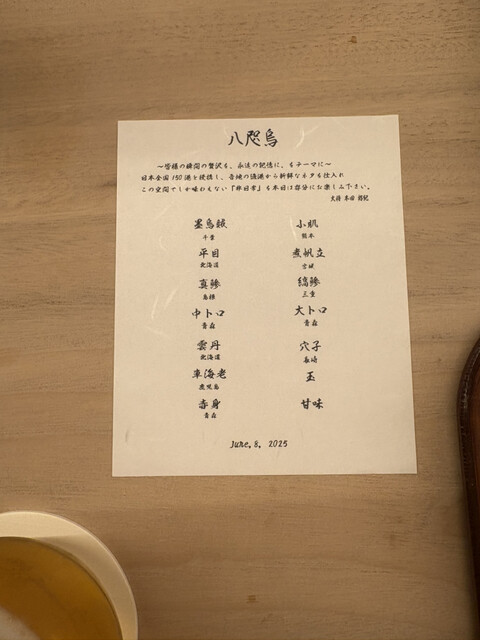 八咫烏
～皆様の瞬間の贅沢を、永遠の記憶に、をテーマに～
日本全国150港を使捜し、各地の漁港から新鮮なネタを仕入れ
この空間でしか味わえない「非日常」を本日は存分にお楽しみ下さい。
大将
墨烏賊 小肌
千葉 熊本
平目 煮帆立
北海道 宮城
真鯵 縞鯵
島根 三重
中トロ 大トロ
青森 青森
雲丹 穴子
北海道 長崎
車海老 玉
鹿児島
赤身 甘味
青森
June. 8. 2025